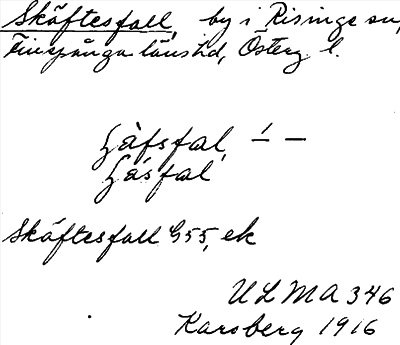 Skäftesfall, by i Risinge sn,
Finspånga länshd, Österg l.
ʃäfsfal, –́ –
ʃäsfal
Skäftesfall G55, ek
ULMA 346
Karsberg 1916